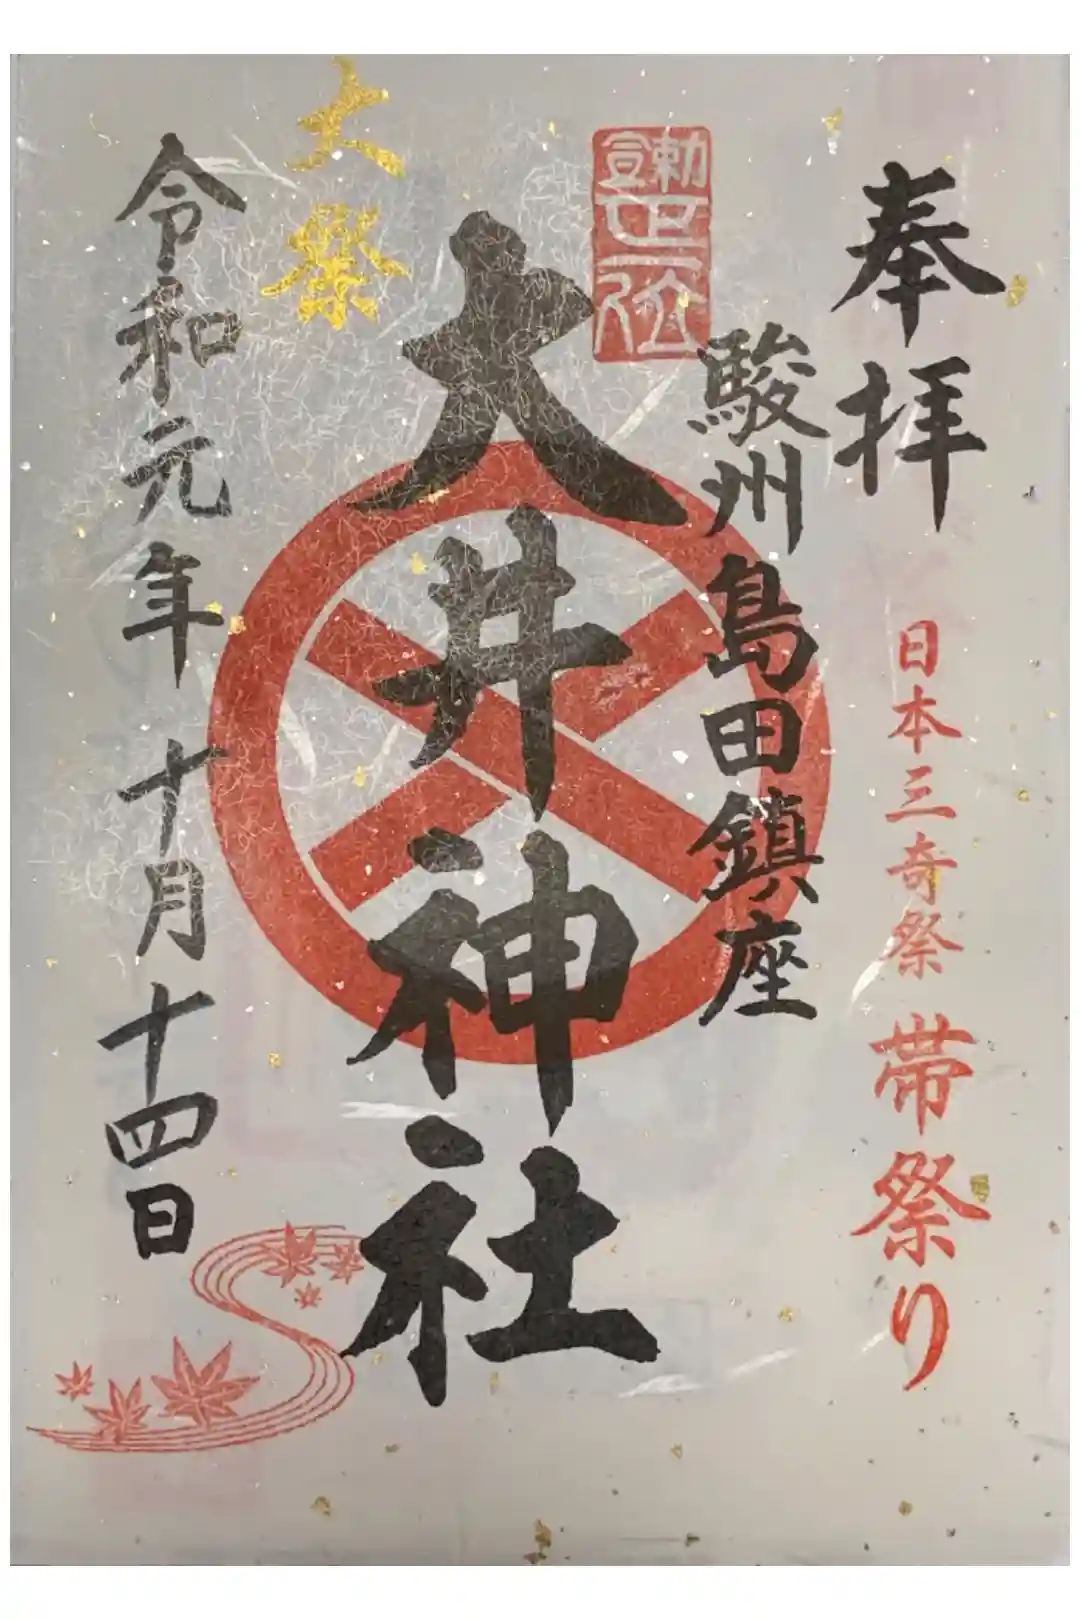 奉拝
日本三奇祭 帯祭り
駿州島田鎮座
勅宣
正一位
大井神社
大祭
令和元年十月十四日